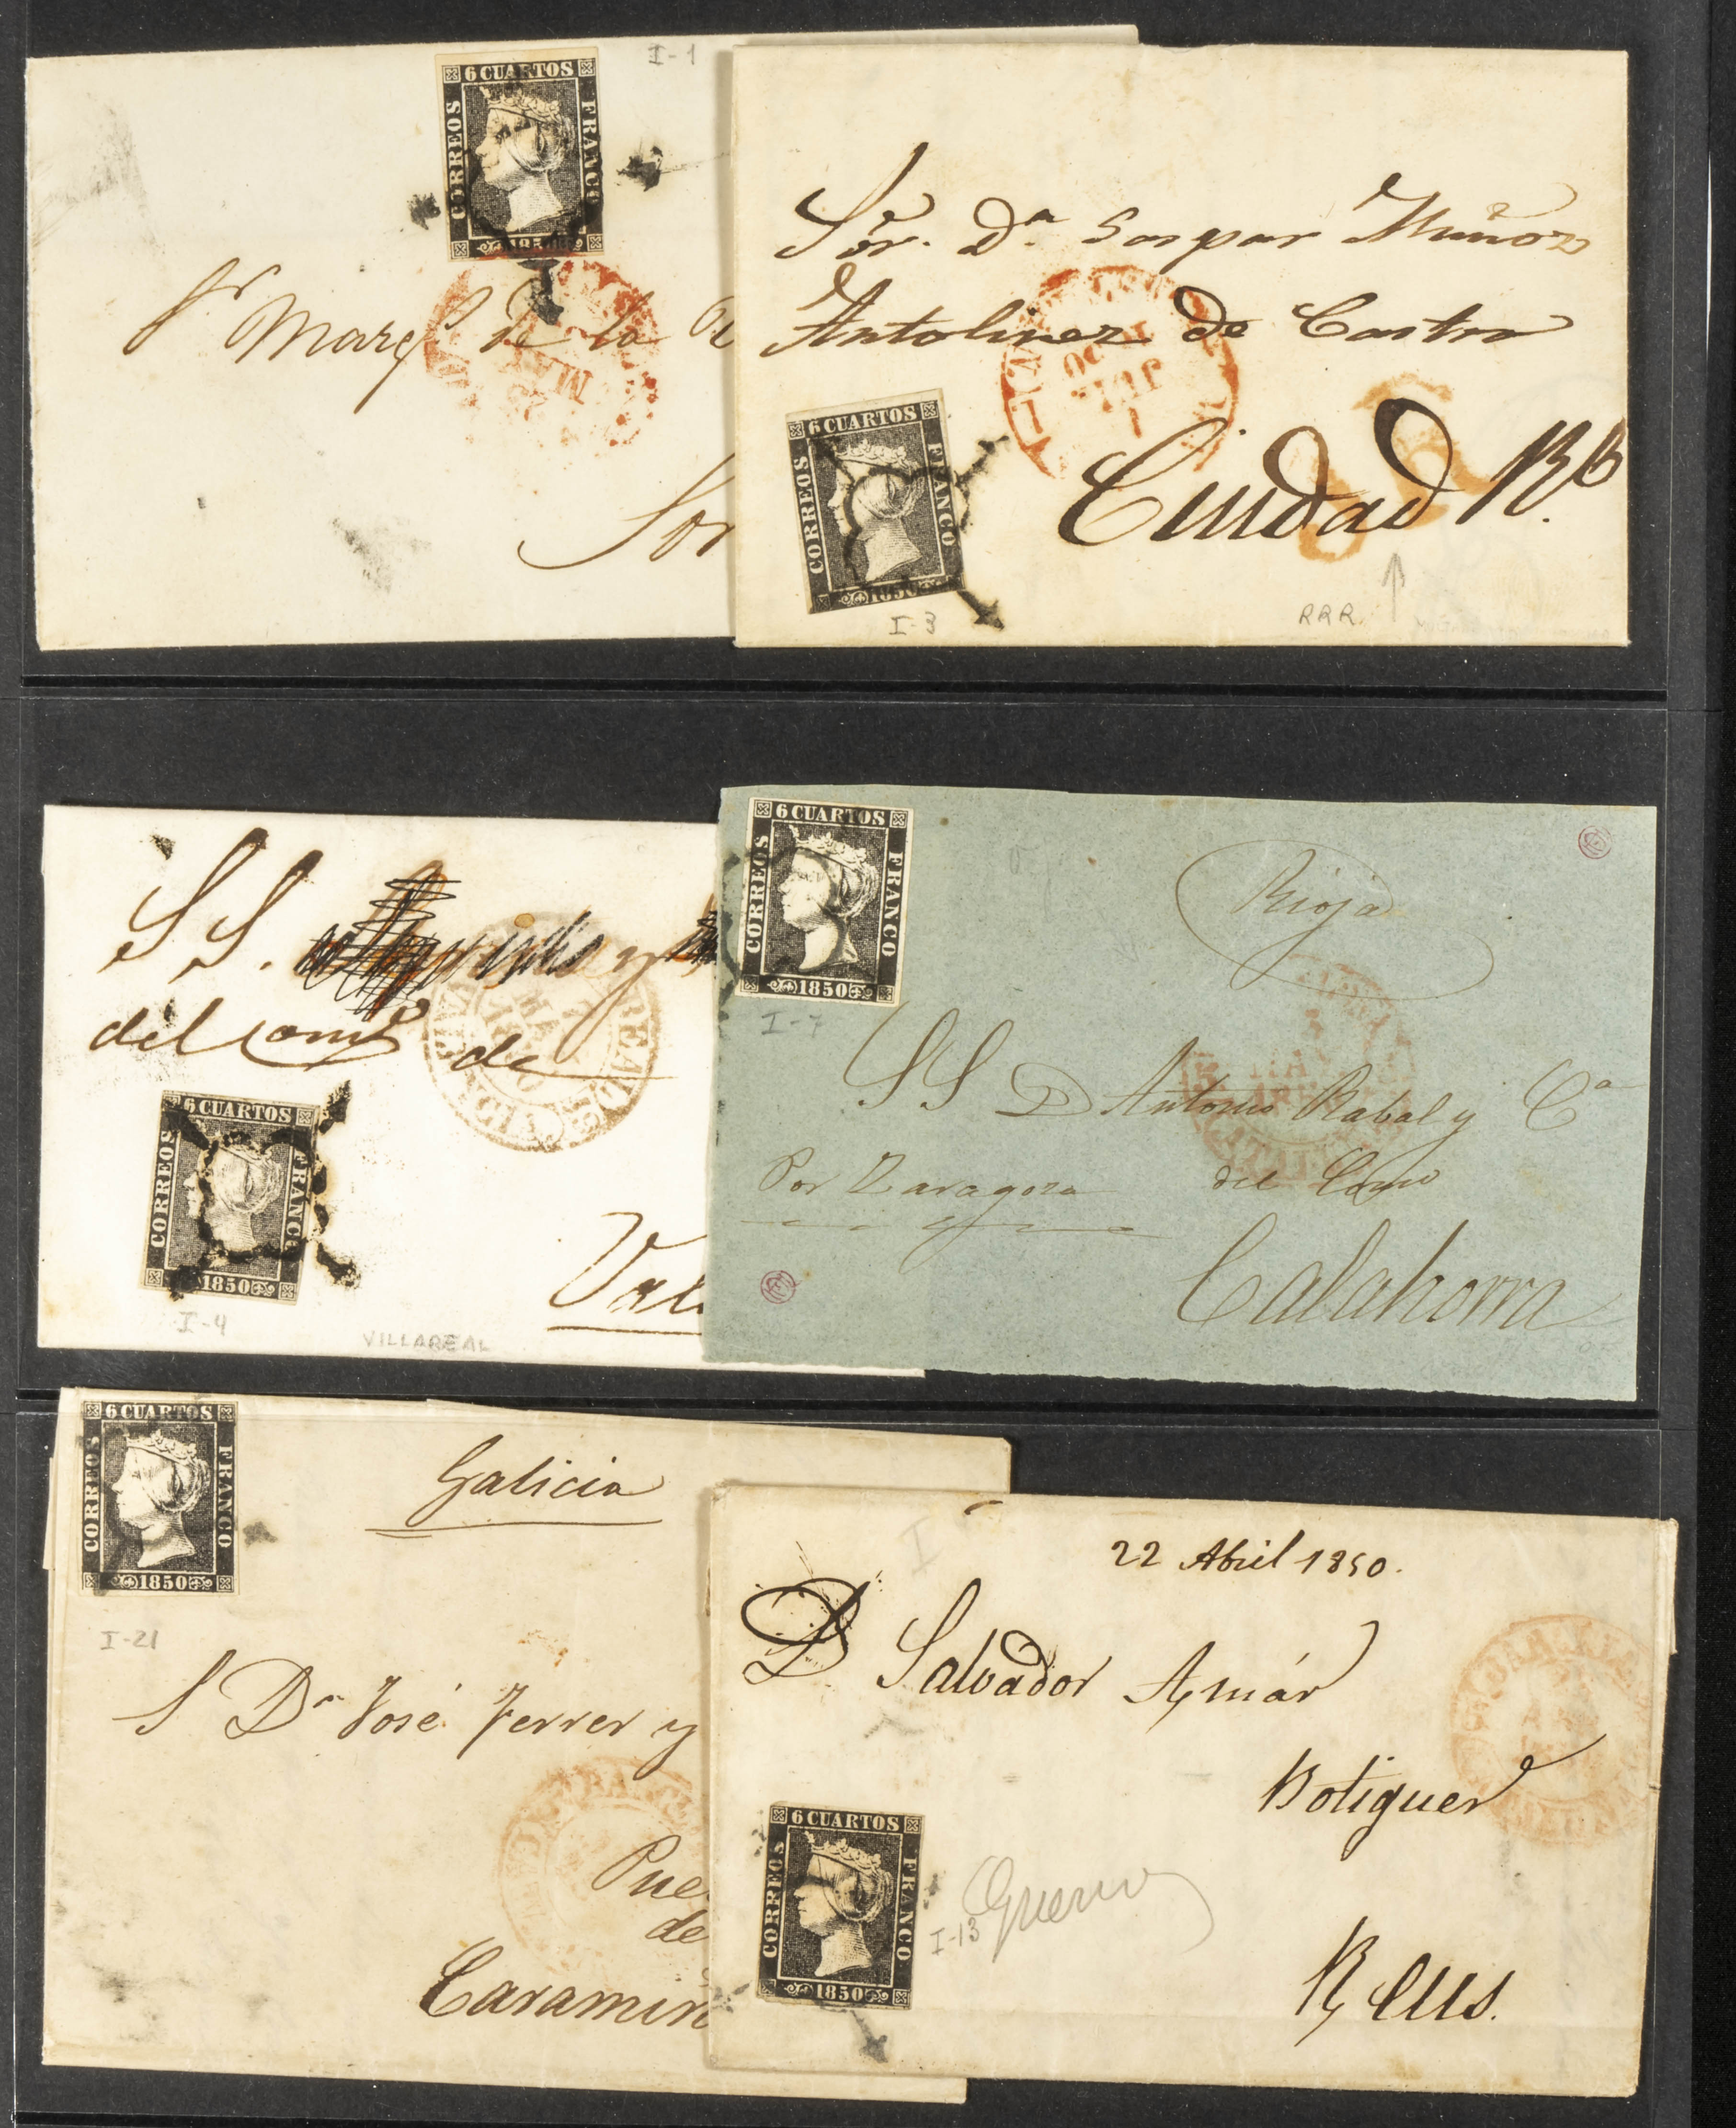 I-1
6 CUARTOS
CORREOS
FRANCO
1850
Sr Marqs de la
Sor
Sor. Dn Gaspar Muñoz
Antolinez de Castro
Ciudad Rl
6 CUARTOS
CORREOS
FRANCO
1850
I-3
RRR
1
JUL
1850
S S. y
del comº de
6 CUARTOS
CORREOS
FRANCO
1850
I-4
VILLAREAL
Val
6 CUARTOS
CORREOS
FRANCO
1850
I-7
Rioja
S S D Antonio Rabal y Ca
Por Zaragoza del Como
Calahorra
6 CUARTOS
CORREOS
FRANCO
1850
I-21
Galicia
S Dn José Ferrer y
Pue
de
Caramiñ
22 Abril 1850.
D Salvador Aymár
Botiguer
Reus.
6 CUARTOS
CORREOS
FRANCO
1850
I-13